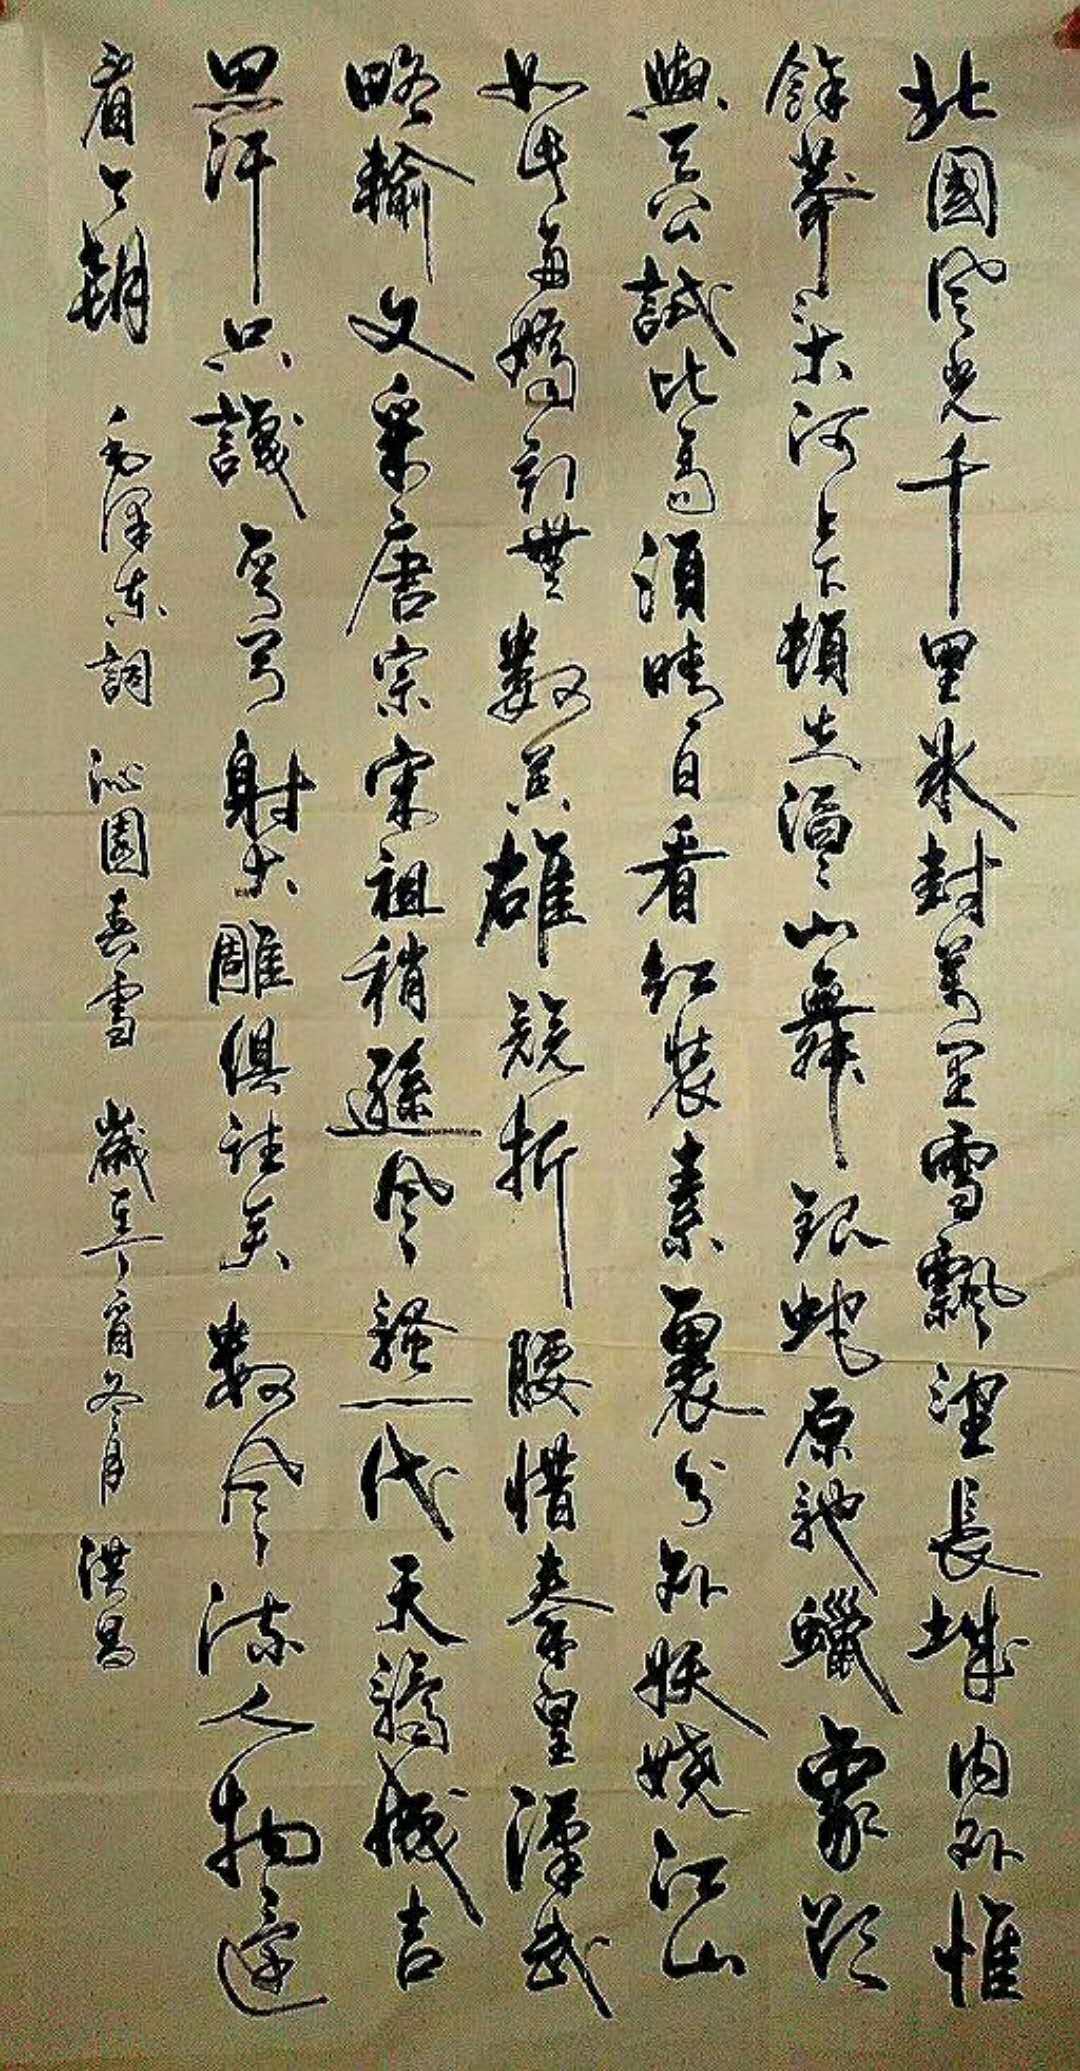 北國風光千里冰封萬里雪飄望長城內外惟
餘莽〻大河上下頓失滔〻山舞銀蛇原馳蠟象欲
與天公試比高須晴日看紅裝素裹分外妖嬈江山
如此多嬌引無數英雄競折腰惜秦皇漢武
略輸文采唐宗宋祖稍遜風騷一代天驕成吉
思汗只識彎弓射大雕俱往矣數風流人物還
看今朝 毛澤東詞 沁園春雪 歲在丁酉冬月 洪昌